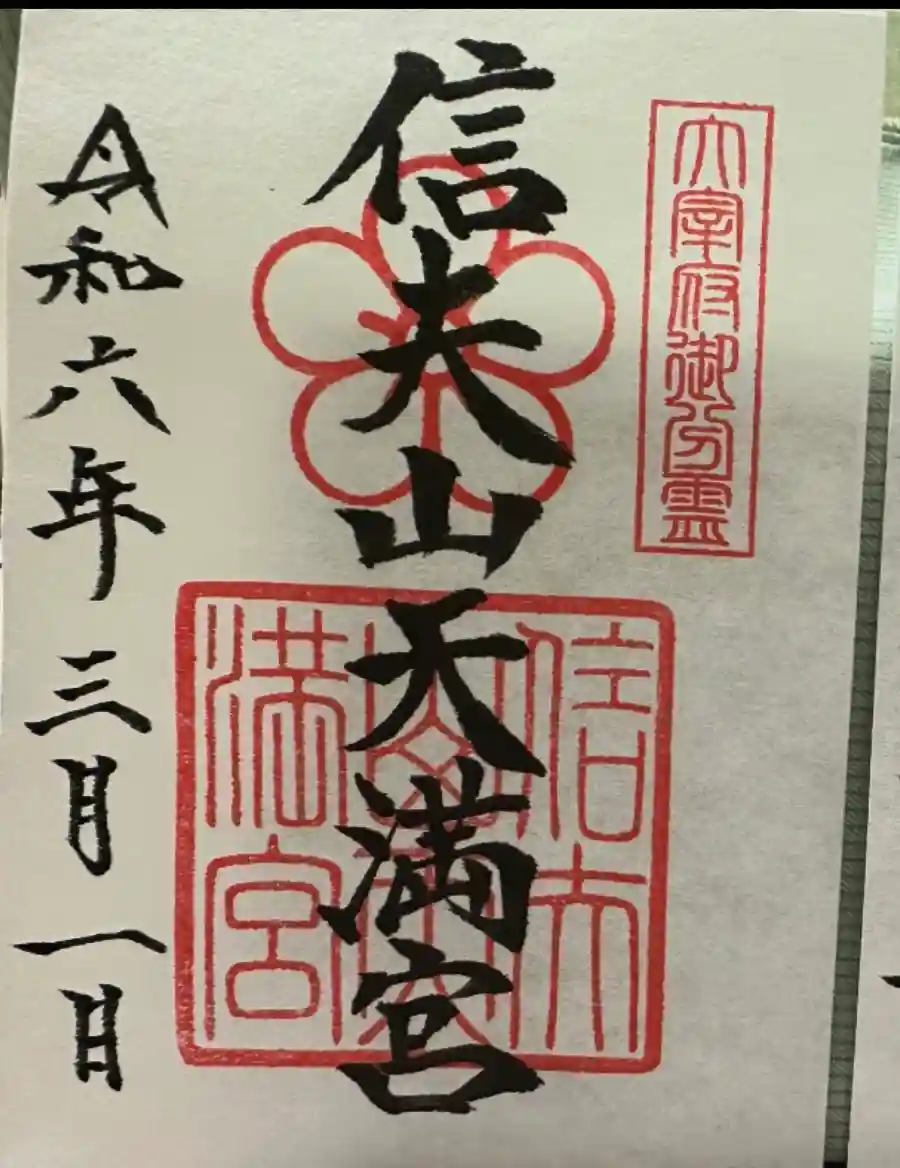 太宰府御分霊
信夫山天満宮
信夫
山天
満宮
令和六年三月一日